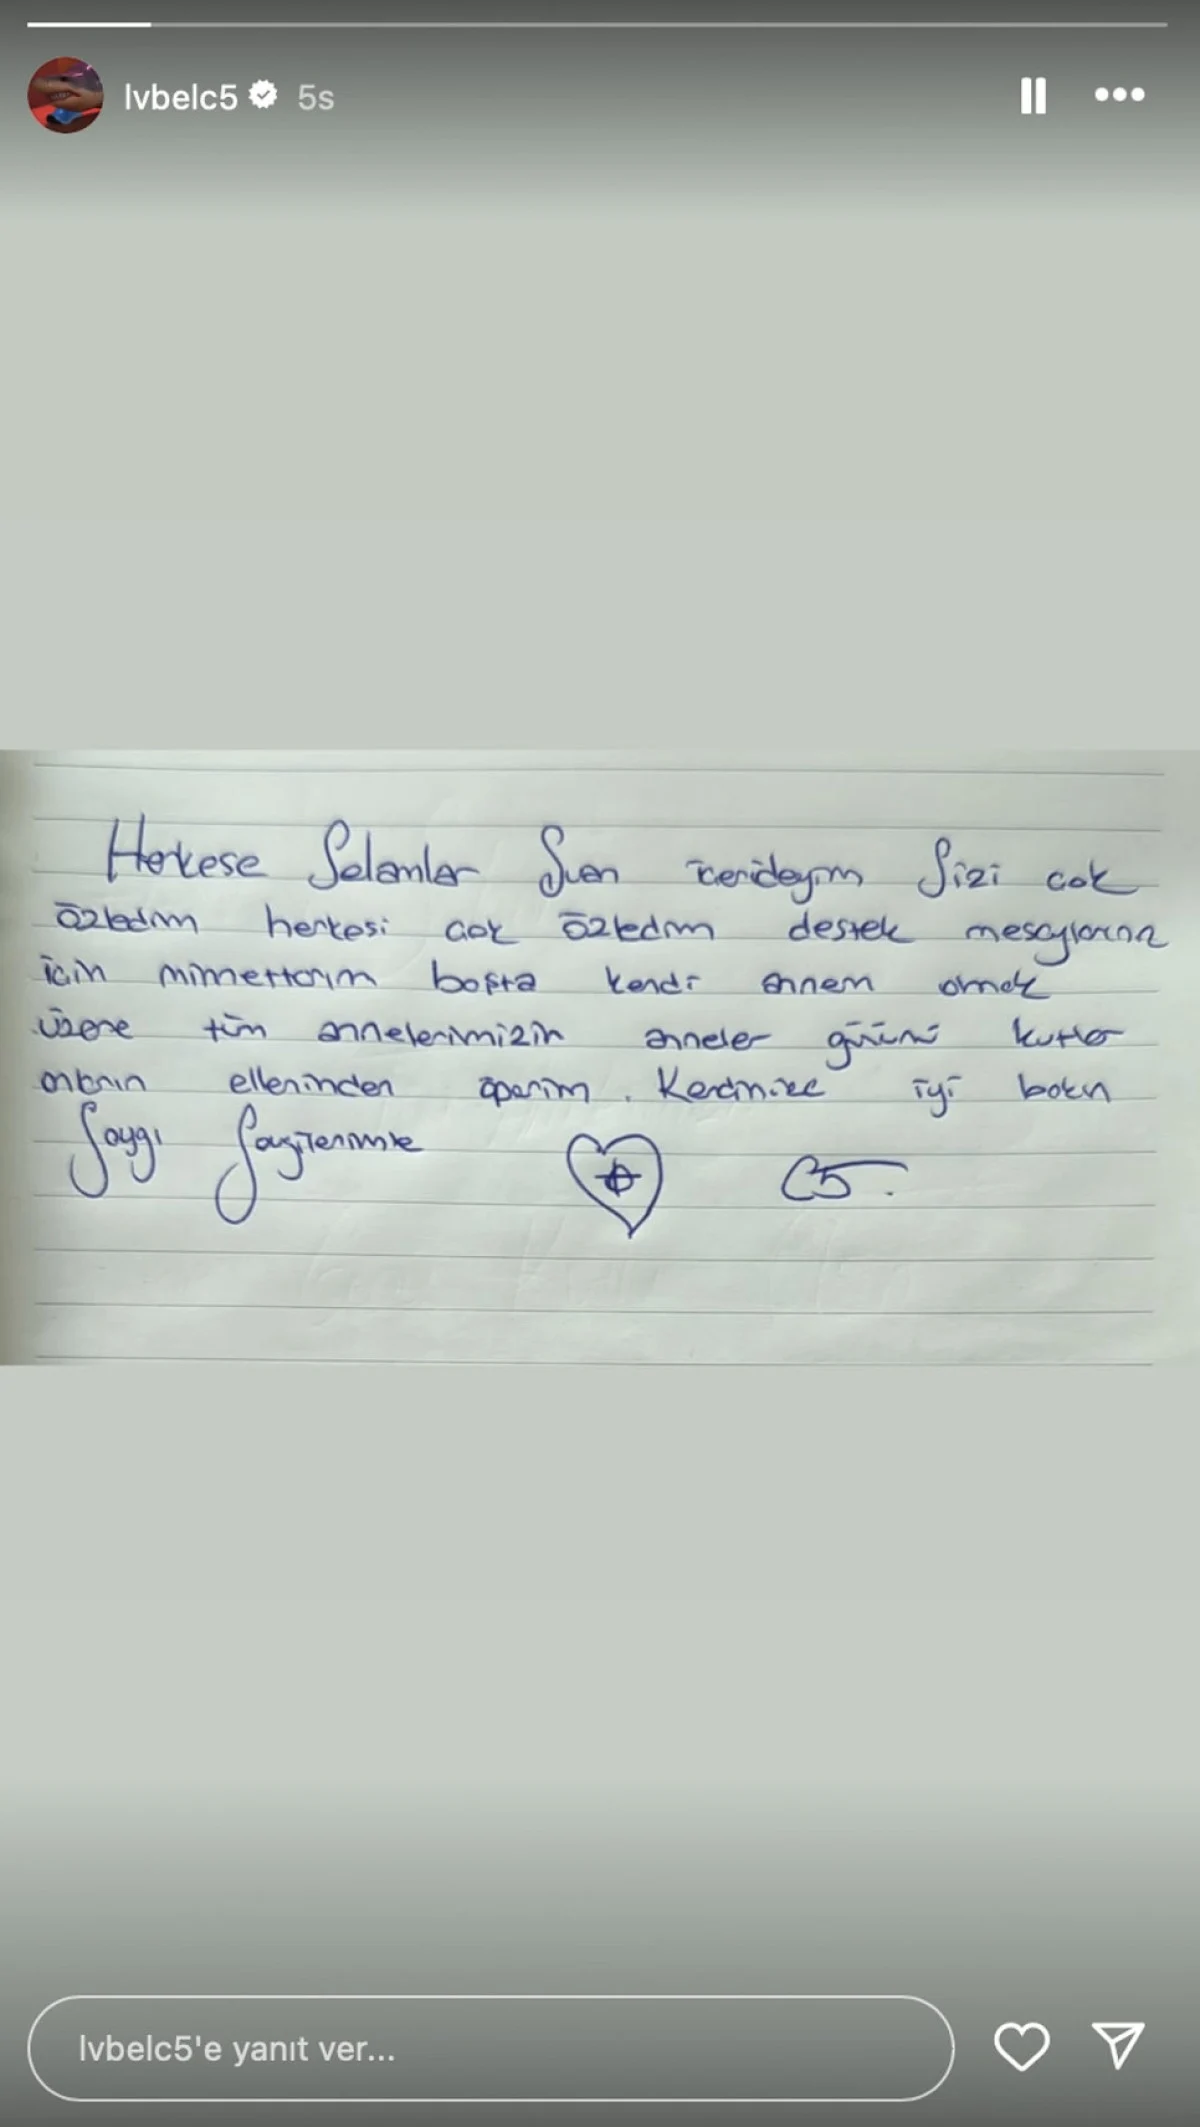 lvbelc5 5s
Herkese Selamlar Şuan içerideyim Sizi cok
özledim herkesi cok özledim destek mesajlarınız
için minnettarım başta kendi annem olmak
üzere tüm annelerimizin anneler gününü kutlar
onların ellerinden öperim. Kendinize iyi bakın
Saygı Saygılarımla C5.
lvbelc5'e yanıt ver...